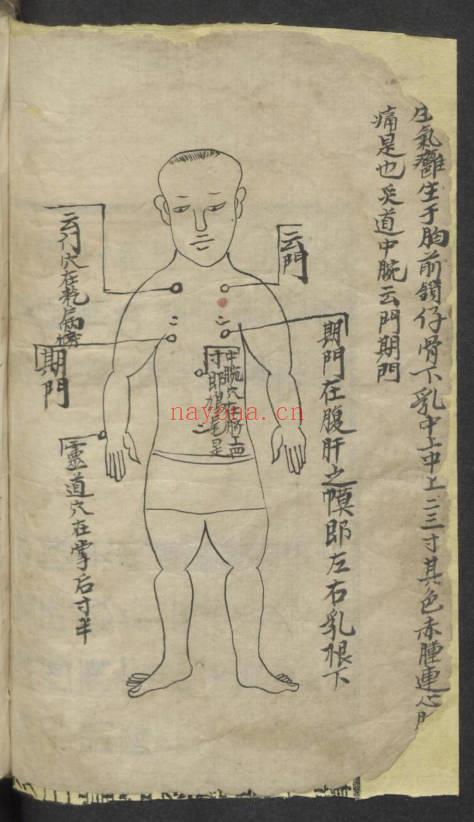 生氣癰生于胸前鎖仔骨下乳中上中上二三寸其色赤腫連心
痛是也灸道中腕云門期門
云門
期門在腹肝之幙即左右乳根下
中腕穴在臍上四
寸即鳩尾是
云门穴在乾
期門
靈道穴在掌后寸半
nayona.cn